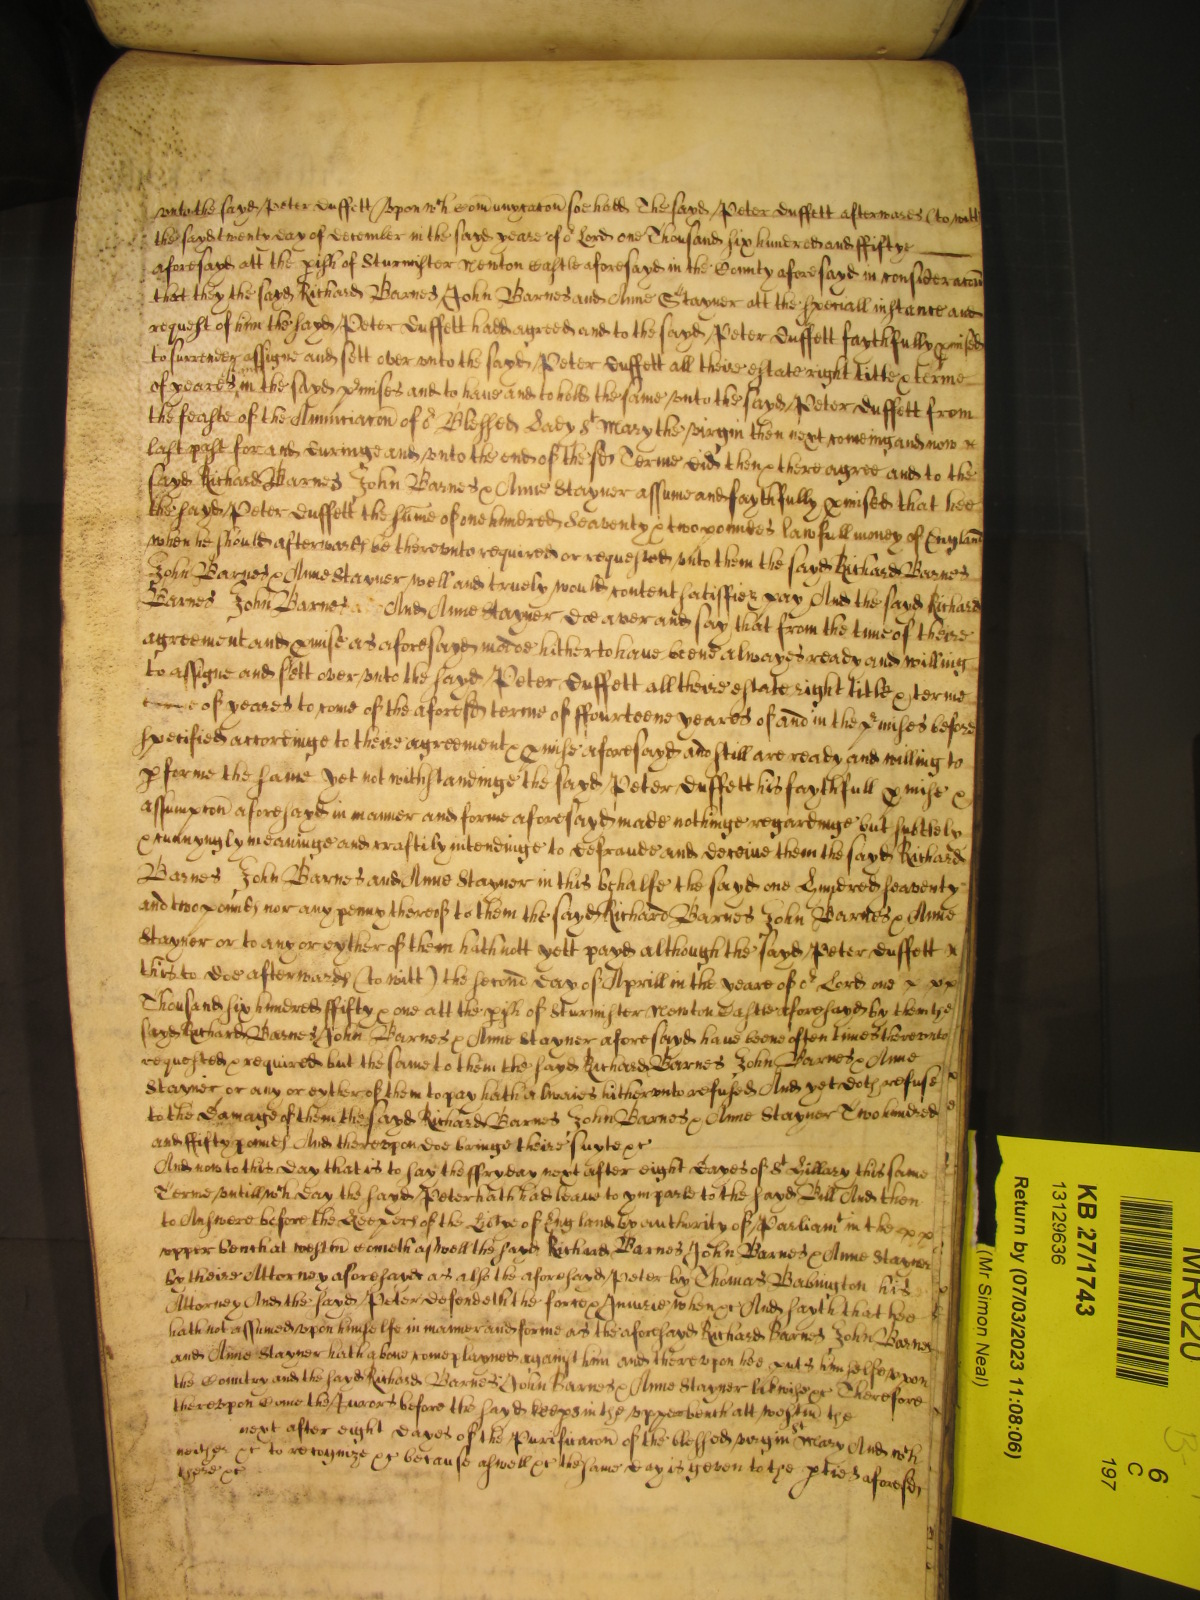 unto the sayd Peter Duffett Upon wch comunycacon soe hadd The sayd Peter Duffett afterwards (to witt
the sayd twenty day of december in the sayd yeare of or Lord one Thousand six hundred and ffiftye
aforesayd att the pish of Sturmister Newton Castle aforesayd in the County aforesayd in consideracon
that they the sayd Richard Barnes John Barnes and Anne Stayner att the speciall instance and
request of him the sayd Peter Duffett hadd agreed and to the sayd Peter Duffett faythfully pmised
to surrender assigne and sett over unto the sayd Peter Duffett all theire estate right title & terme
of yeares in the sayd pmises and to have and to hold the same unto the sayd Peter Duffett from
the feaste of the Anunciacon of or Blessed Lady St Mary the virgin then next comeing and now
last past for and duringe and unto the end of the sd Terme did then & there agree and to the
sayd Richard Barnes John Barnes & Anne Stayner assume and faythfully pmised that hee
the sayd Peter Duffett the sume of one hundred seaventy & two poundes lawfull money of England
when he should afterwards be thereunto required or requested unto them the sayd Richard Barnes
John Barnes & Anne Stayner well and truely would content satisfie & pay And the sayd Richard
Barnes John Barnes And Anne Stayner doe aver and say that from the time of theire
agreement and pmise as aforesayd made hitherto have beene alwayes ready and willing
to assigne and sett over unto the sayd Peter Duffett all theire estate right title & terme
of yeares to come of the aforesd terme of ffourteene yeares of and in the pmises before
specified accordinge to theire agreement & pmise aforesayd and still are ready and willing to
pforme the same yet notwithstandinge the sayd Peter Duffett his faythfull pmise &
assumpcon aforesayd in manner and forme aforesayd made nothinge regardinge but subtlely
& cunnyngly meaninge and craftily intendinge to defraude and deceive them the sayd Richard
Barnes John Barnes and Anne Stayner in this behalfe the sayd one hundred seaventy
and two pounds nor any penny thereof to them the sayd Richard Barnes John Barnes & Anne
Stayner or to any or eyther of them hath nott yett payd although the sayd Peter Duffett
this to doe afterwards (to witt) the second day of Aprill in the yeare of or Lord one
Thousand six hundred ffifty & one att the pish of Sturmister Newton Castle aforesayd by them the
sayd Richard Barnes John Barnes & Anne Stayner aforesayd have beene often times thereunto
requested & required but the same to them the sayd Richard Barnes John Barnes & Anne
Stayner or any or eyther of them to pay hath alwaies hitherunto refused And yet doth refuse
to the damage of them the sayd Richard Barnes John Barnes & Anne Stayner Two hundred
and ffifty pounds And thereupon doe bringe theire suyte &c
And now to this day that is to say the ffryday next after eight dayes of St Hillary this same
Terme untill wch day the sayd Peter hath had leave to ymparle to the sayd Bill And then
to Answere before the Keepers of the Libtye of England by authority of Parliamt in the
upper bench at westm cometh aswell the sayd Richard Barnes John Barnes & Anne Stayner
by theire Attorney aforesayd as also the aforesayd Peter by Thomas Babington his
Attorney And the sayd Peter defendeth the force & Iniurie when &c And sayth that hee
hath not assumed upon himselfe in manner and forme as the aforesayd Richard Barnes John Barnes
and Anne Stayner hath above complayned against him and thereupon hee puts himselfe upon
the Country and the sayd Richard Barnes John Barnes & Anne Stayner likwise &c Therefore
thereupon Come the Jurors before the sayd keeps in the upper bench att westm the
next after eight dayes of the Purificacon of the blessed virgin St Mary And wch
neither &c to recognize &c because aswell &c the same day is geven to the pties aforesd
there &c
MR020
KB 27/1743
13129636
Return by (07/03/2023 11:08:06)
(Mr Simon Neal)
6
C
197